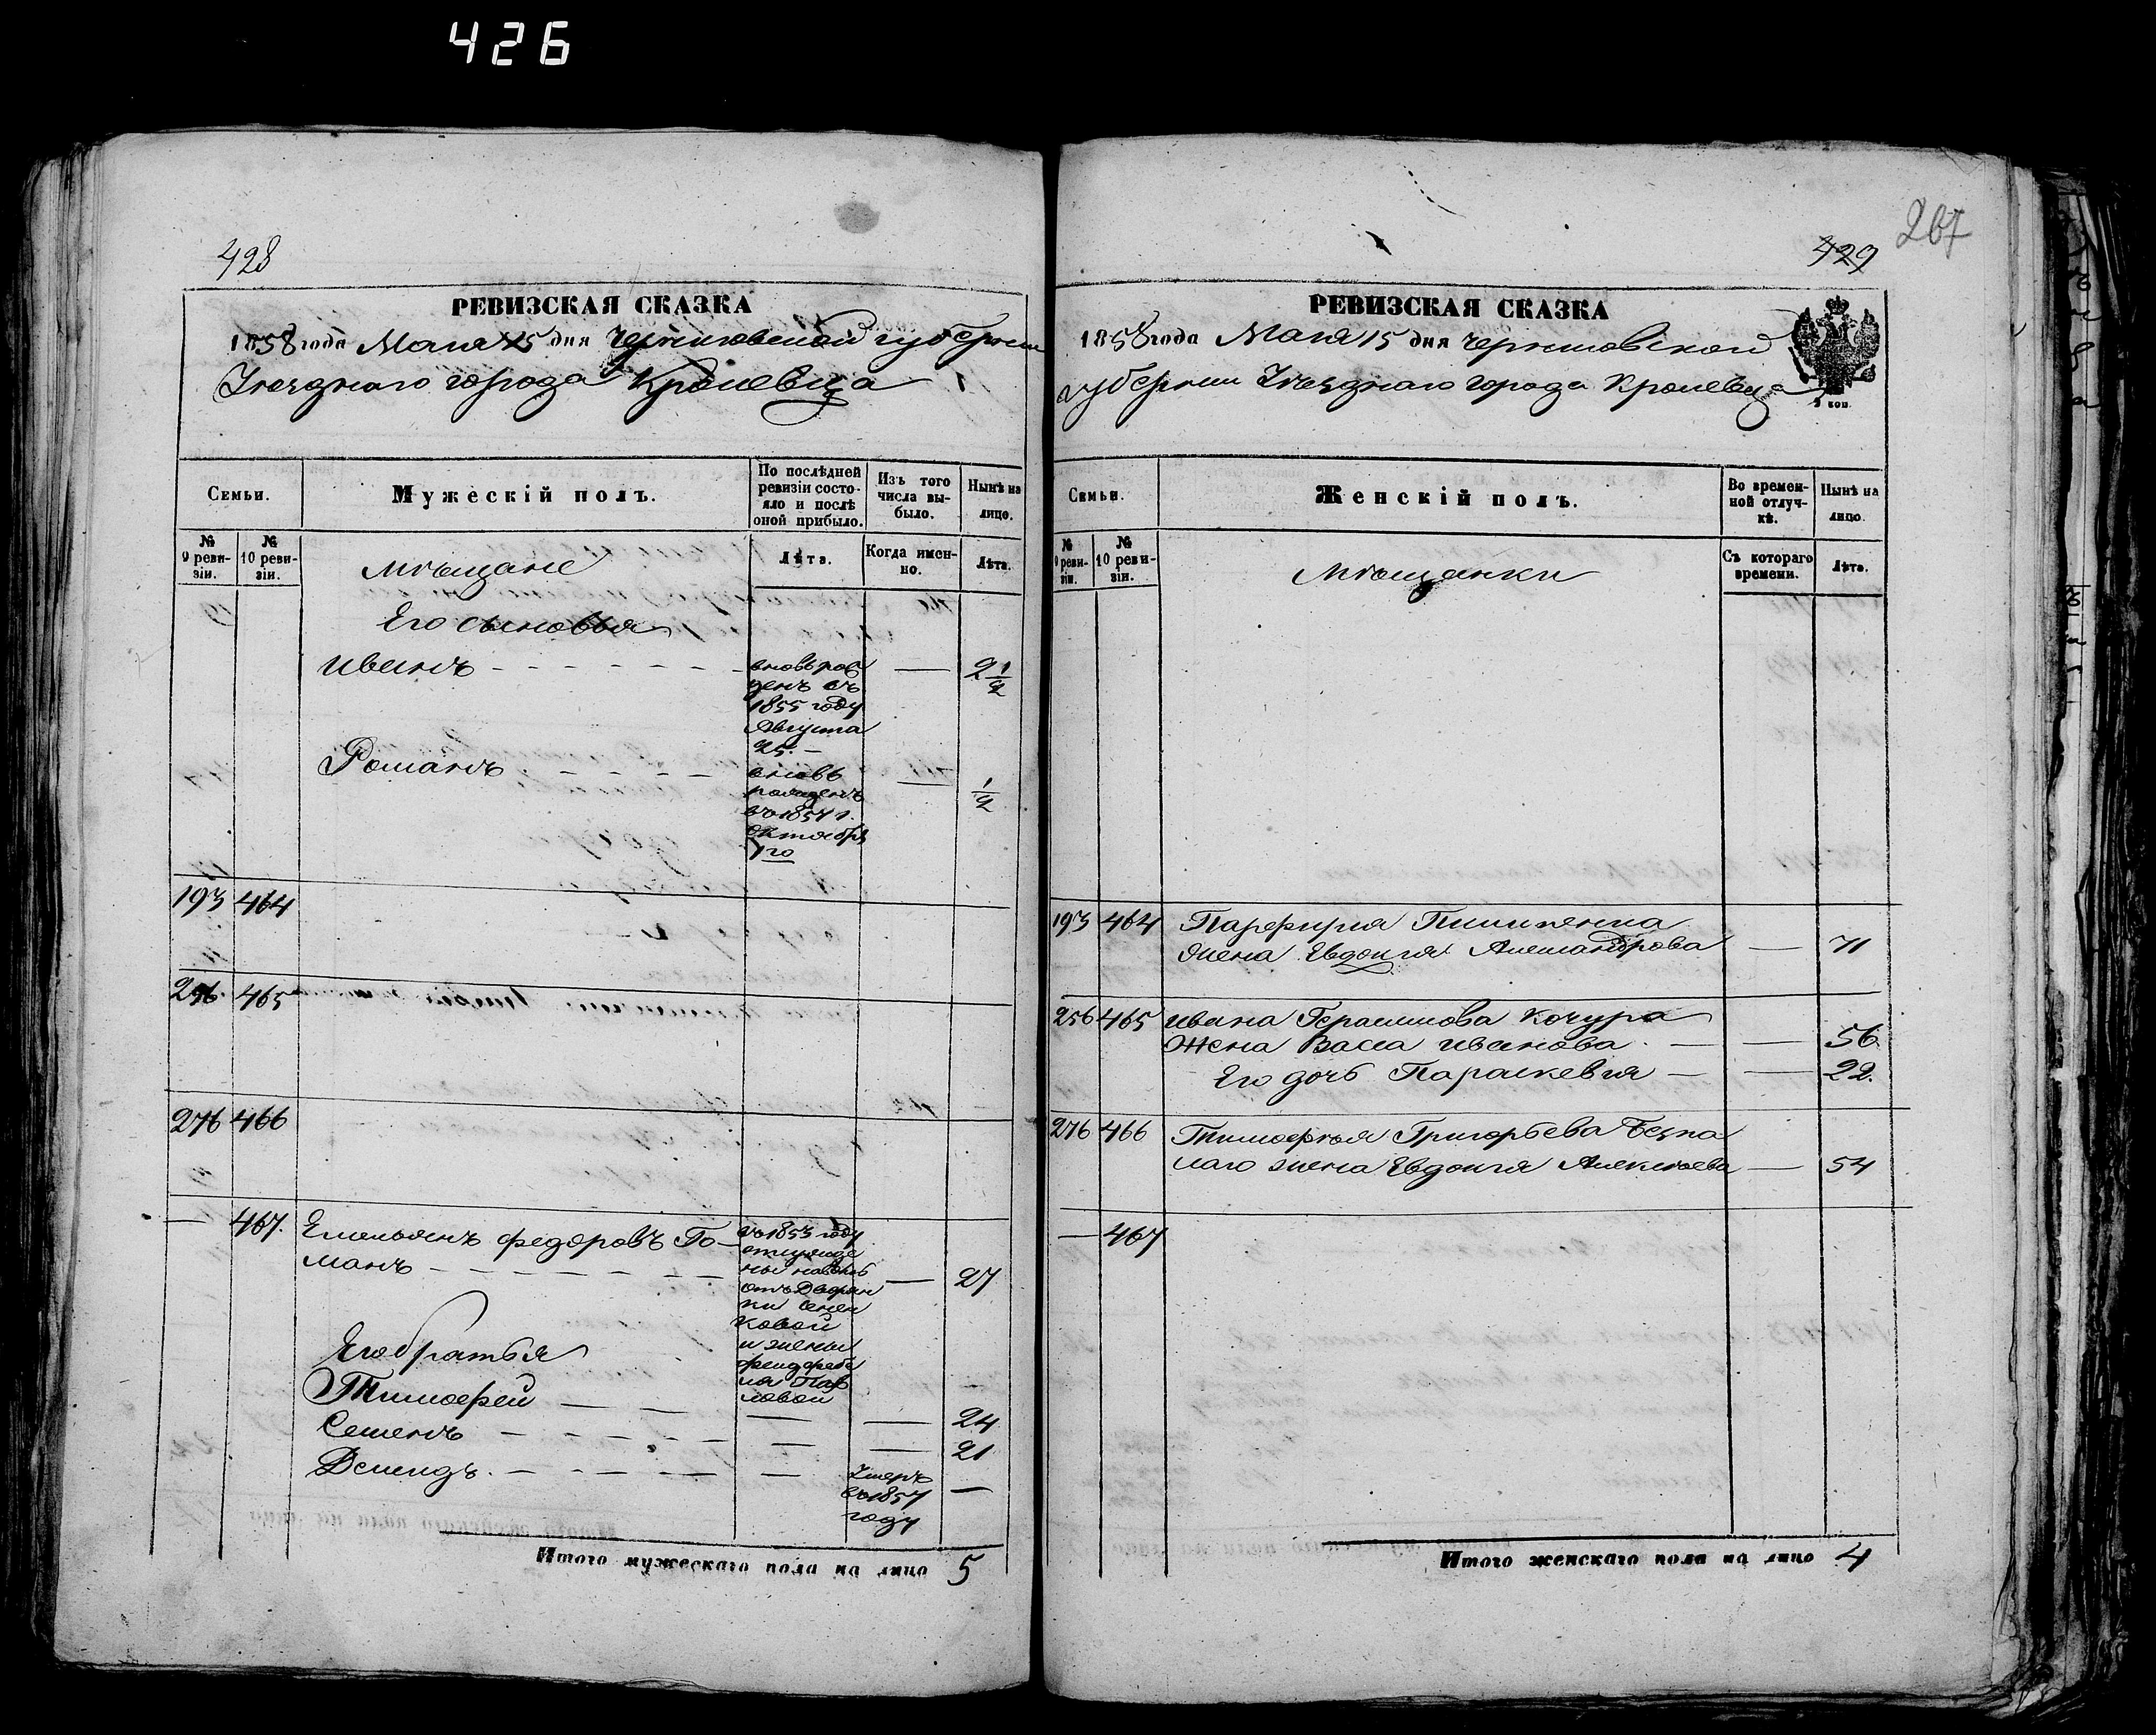 426
428
РЕВИЗСКАЯ СКАЗКА
1858 года Маія 15 дня Черниговской губерніи
Уезднаго города Кролевца
Семьи.
Мужескій полъ.
По послѣдней ревизіи состояло и послѣ оной прибыло.
Изъ того числа выбыло.
Нынѣ на лицо.
№ 9 ревизіи.
№ 10 ревизіи.
Мѣщане
Лѣта.
Когда именно.
Лѣта.
Его сыновья
Иванъ
вновь рожденъ въ
1855 году
Августа
25.
2 1/2
Романъ
вновь
рожденъ
въ 1857 г.
Октября
7го
1/2
193 464
256 465
276 466
— 467. Емельянъ Федоровъ Го-
манъ
въ 1853 году
27
и жены
Его братья
Тимофей — — 24
Семенъ — — 21
Демидъ. — Умеръ
въ 1857
году —
Итого мужескаго пола на лицо 5
429
267
РЕВИЗСКАЯ СКАЗКА
1858 года Маія 15 дня Черниговской
губерніи Уезднаго города Кролевца
Семьи.
Женскій полъ.
Во временной отлучкѣ.
Нынѣ на лицо.
№ 9 ревизіи.
№ 10 ревизіи.
Мѣщанки
Съ котораго времени.
Лѣта.
193 464 Парфирія
жена Евдокія Александрова — 71
256 465 Ивана Герасимова Кочура
Жена Васса Иванова — 56
Его дочь Параскевія — 22.
276 466 Тимофѣя Григорьева Безпа
лаго жена Евдокія Алексѣева — 54
— 467
Итого женскаго пола на лицо 4